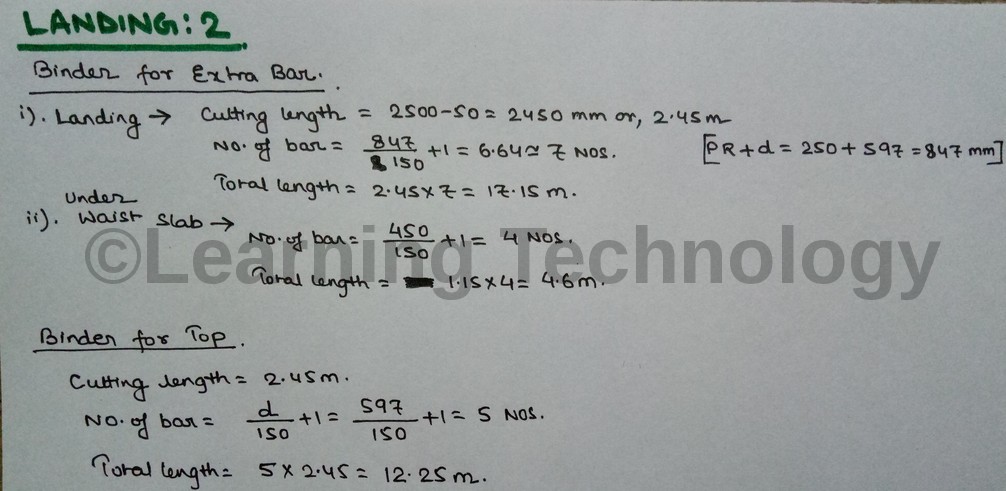 LANDING: 2
Binder for Extra Bar.
i). Landing → Cutting length = 2500-50 = 2450 mm or, 2.45m
No. of bar = 847/150 +1 = 6.64 ≃ 7 NOS. [PR+d = 250+597 = 847 mm]
Total length = 2.45×7 = 17.15 m.
ii). Under Waist Slab →
No. of bar = 450/150 +1 = 4 NOS.
Total length = 1.15×4 = 4.6m.
©Learning Technology
Binder for Top.
Cutting length = 2.45m.
No. of bar = d/150 +1 = 597/150 +1 = 5 NOS.
Total length = 5 × 2.45 = 12.25 m.